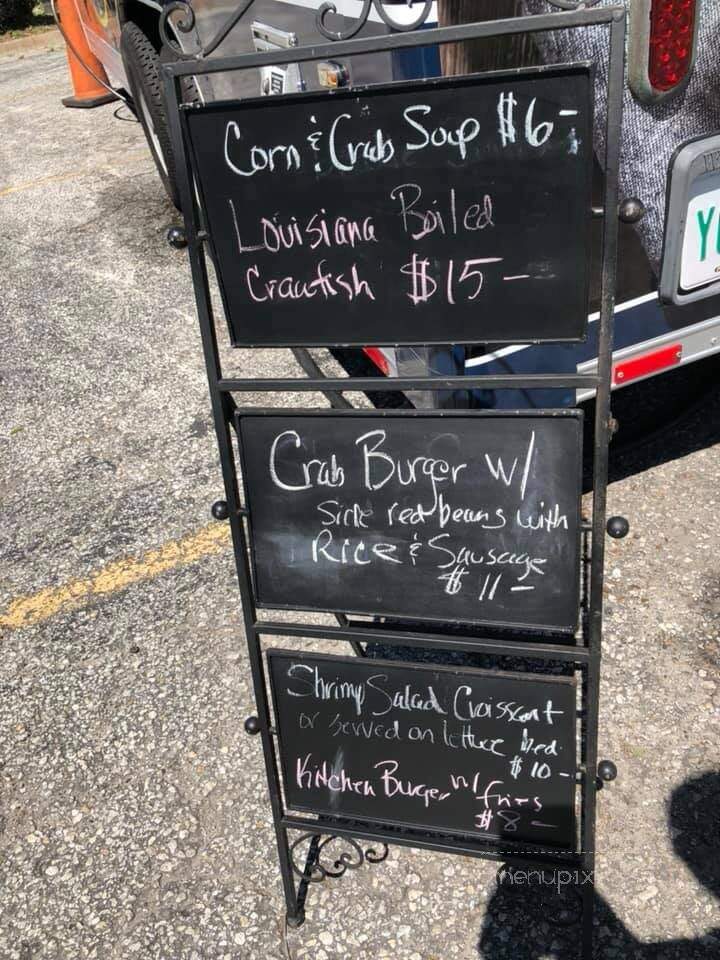 Corn & Crab Soup $6-
Louisiana Boiled
Crawfish $15-
Crab Burger w/
Side red beans with
Rice & Sausage
$11-
Shrimp Salad Croissant
or served on lettuce bed.
$10-
Kitchen Burger w/
fries
$8-
Y
menupix